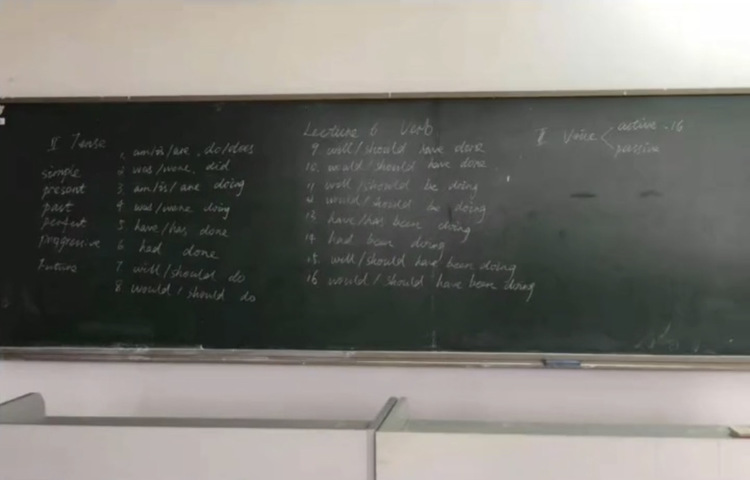 Lecture 6 Verb
II Tense
simple
present
past
perfect
progressive
Future
1. am/is/are, do/does
2 was/were, did
3 am/is/are doing
4. was/were doing
5 have/has done
6 had done
7 will/should do
8 would/should do
9 will/should have done
10. would/should have done
11 will/should be doing
12 would/should be doing
13 have/has been doing
14 had been doing
15. will/should have been doing
16 would/should have been doing
II Voice
active · 16
passive